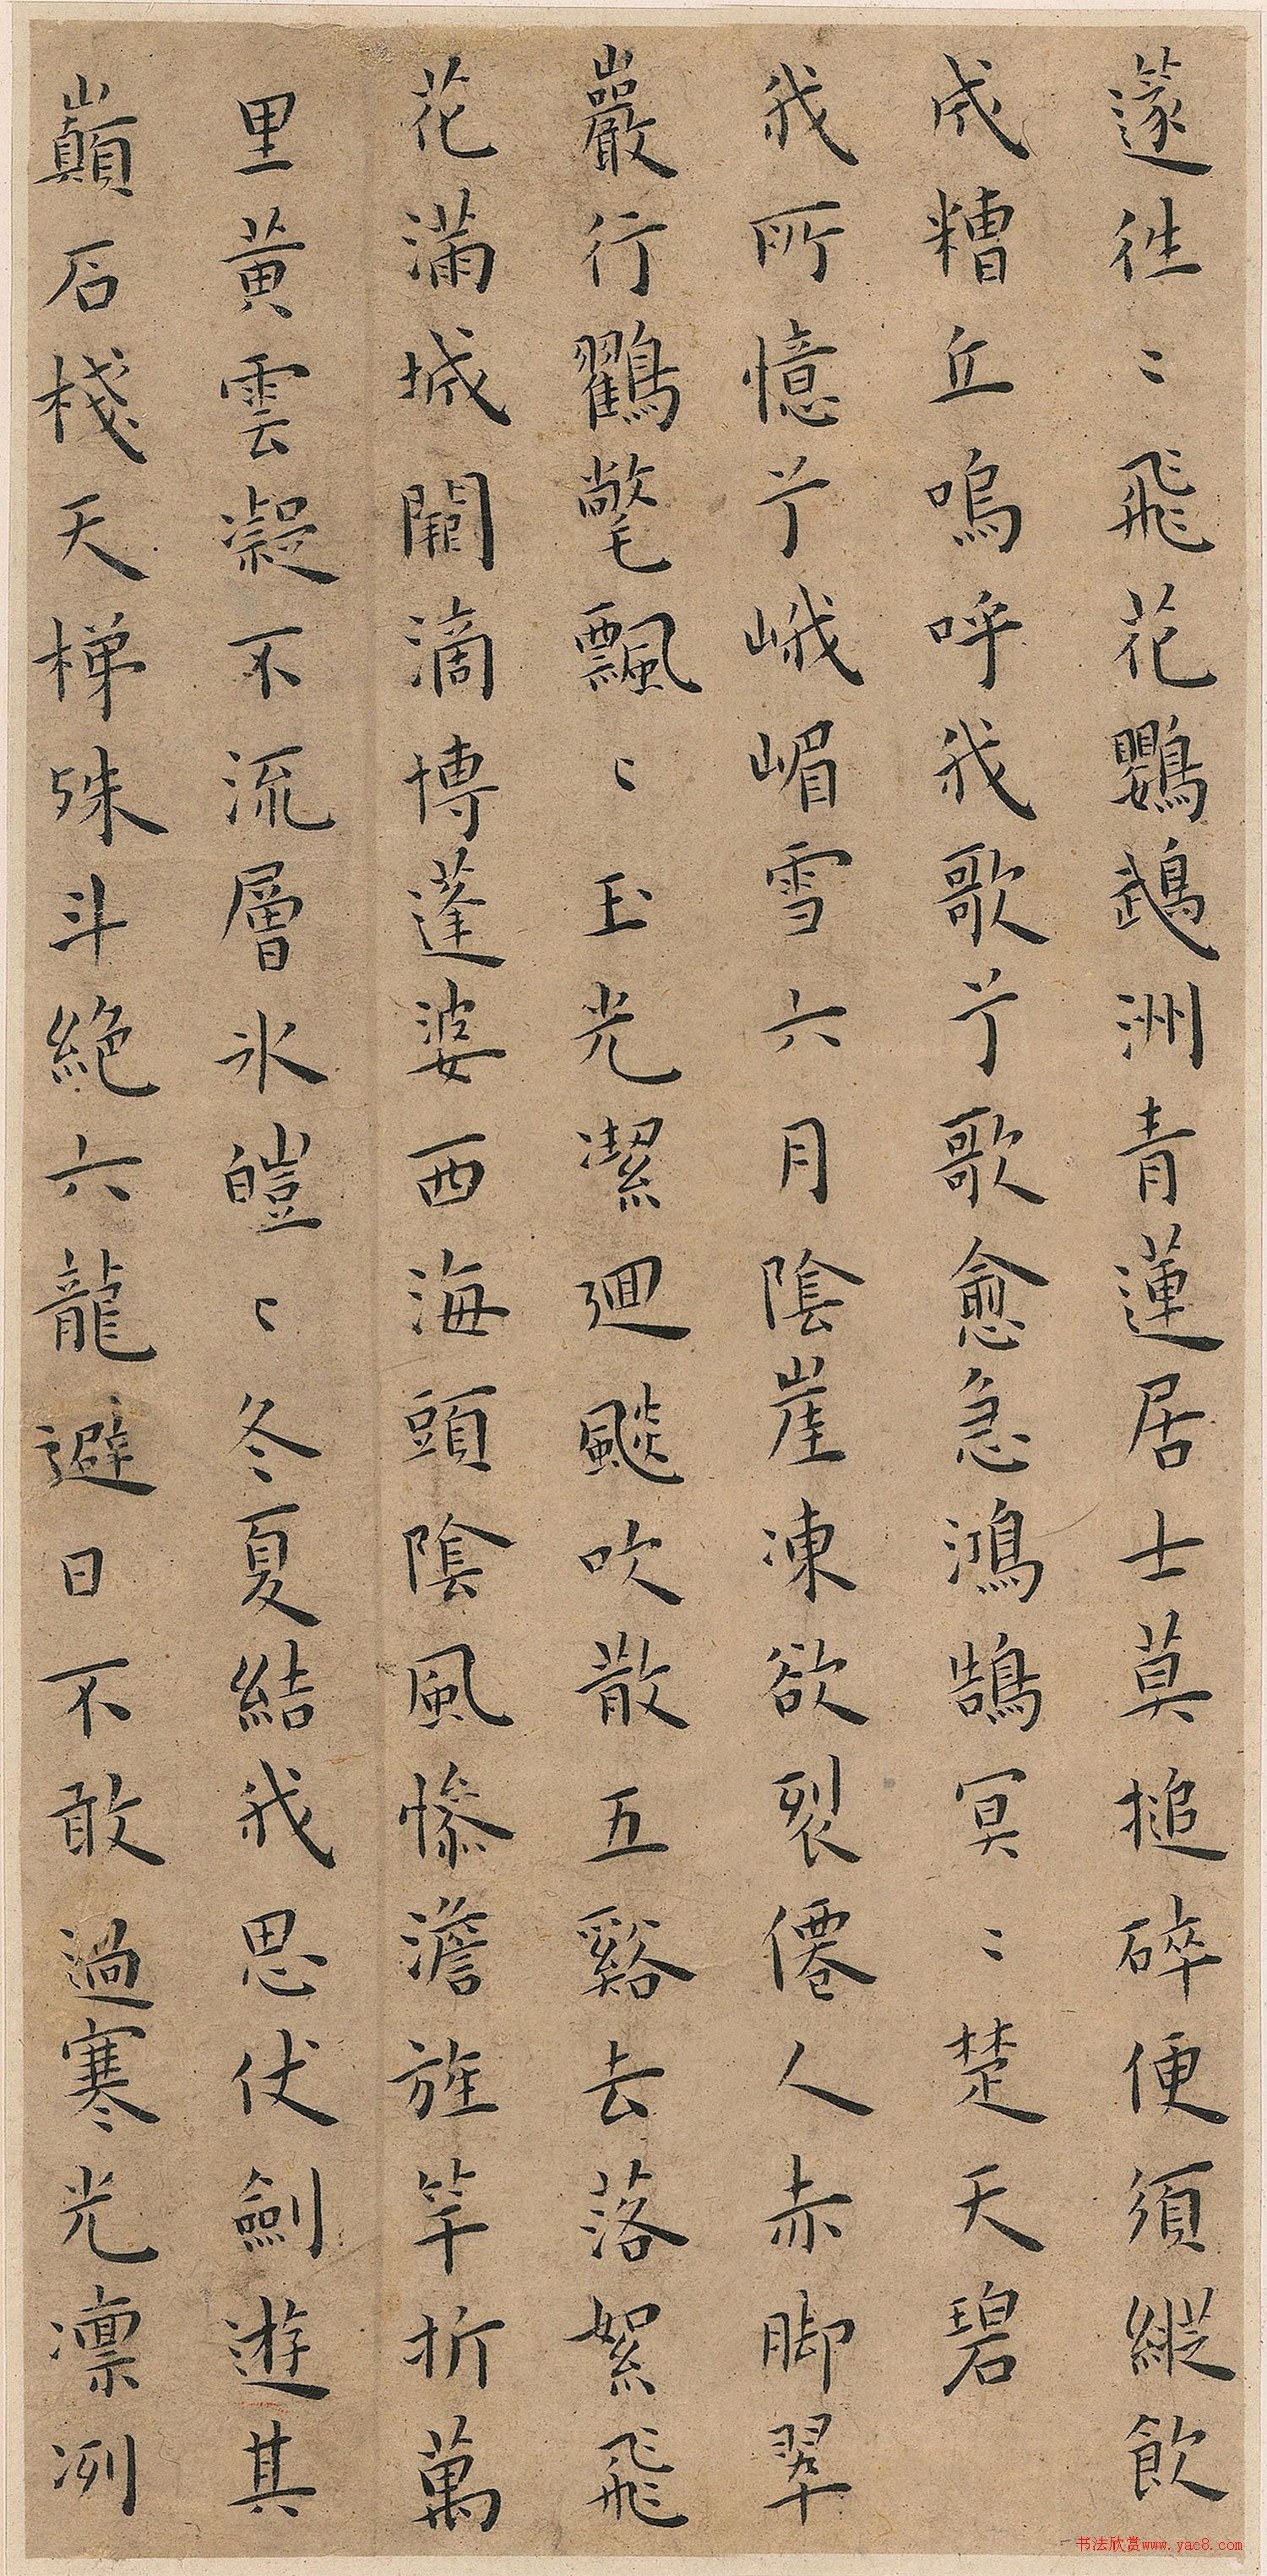 篴徃〻飛花鸚鵡洲青蓮居士莫搥碎便須縱飲
成糟丘嗚呼我歌兮歌愈急鴻鵠冥〻楚天碧
我所憶兮峨嵋雪六月陰崖凍欲裂僊人赤脚翠
巖行鸛氅飄〻玉光潔迴颷吹散五谿去落絮飛
花滿城闕滴博蓬婆西海頭陰風慘澹旌竿折萬
里黄雲凝不流層氷皚〻冬夏結我思伏劍遊其
巔石棧天梯殊斗絶六龍避日不敢過寒光凛冽
书法欣赏www.yac8.com